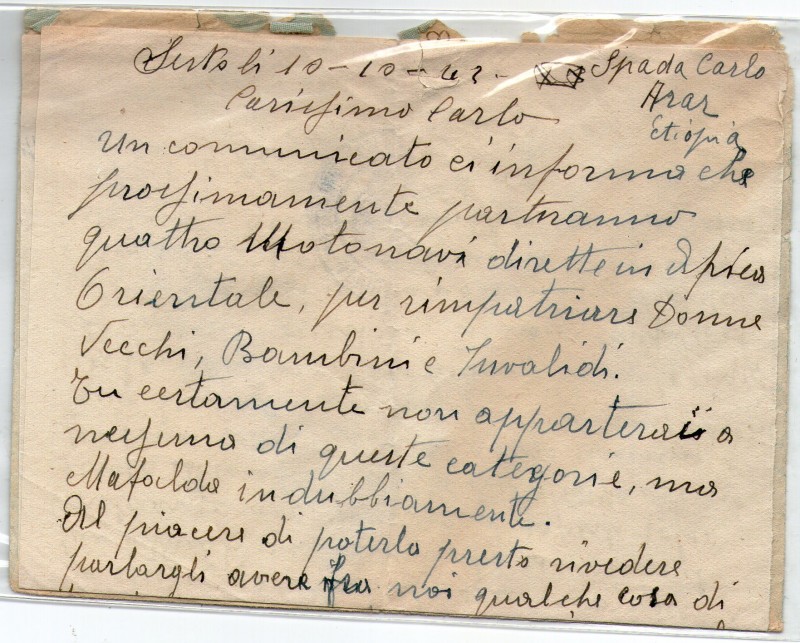 10-10-42 - Spada Carlo
Carissimo Carlo Arar
Etiopia
Un comunicato ci informa che
prossimamente partranno
quattro Motonavi dirette in Africa
Orientale, per rimpatriare Donne
Vecchi, Bambini e Invalidi.
Tu certamente non apparterai a
nessuna di queste categorie, ma
Mafalda indubbiamente.
Al piacere di poterla presto rivedere
parlargli avere fra noi qualche cosa di